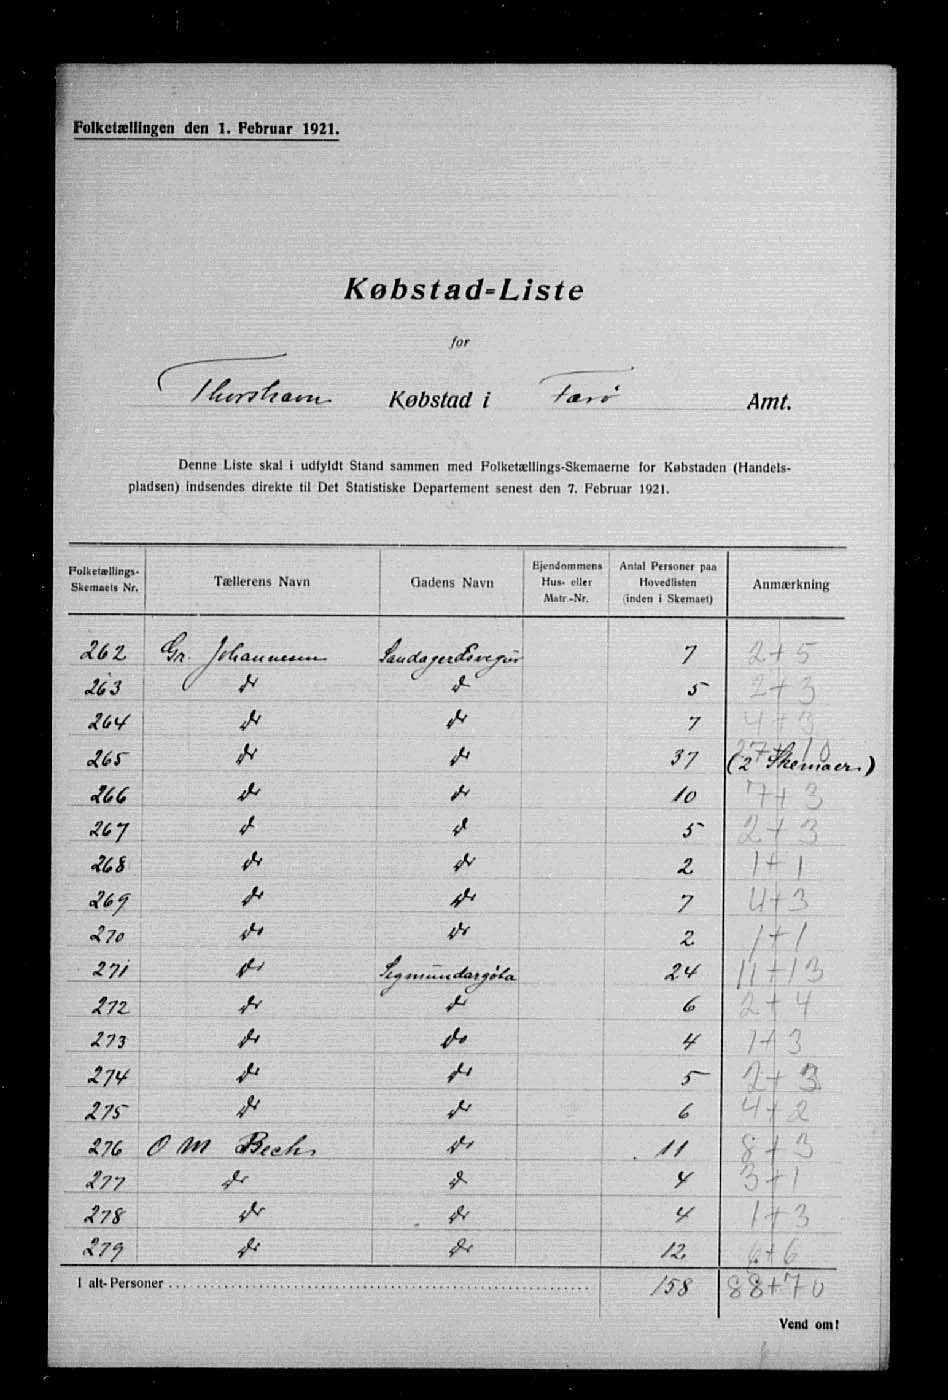 Folketællingen den 1. Februar 1921.
Købstad-Liste
for
Thorshavn Købstad i Færø Amt.
Denne Liste skal i udfyldt Stand sammen med Folketællings-Skemaerne for Købstaden (Handels-
pladsen) indsendes direkte til Det Statistiske Departement senest den 7. Februar 1921.
Folketællings-Skemaets Nr. Tællerens Navn Gadens Navn Ejendommens Hus- eller Matr.-Nr. Antal Personer paa Hovedlisten (inden i Skemaet) Anmærkning
262 Gr. Johannesen 7 2+5
263 do d 5 2+3
264 do do 7 4+3
265 do do 37 27+10 (2 Skemaer.)
266 do do 10 7+3
267 d d 5 2+3
268 do do 2 1+1
269 do do 7 4+3
270 do do 2 1+1
271 do Sigmundargøta 24 11+13
272 do do 6 2+4
273 do do 4 1+3
274 do do 5 2+3
275 do do 6 4+2
276 O M Bech. do 11 8+3
277 do d 4 3+1
278 do do 4 1+3
279 do do 12 6+6
I alt-Personer 158 88+70
Vend om!